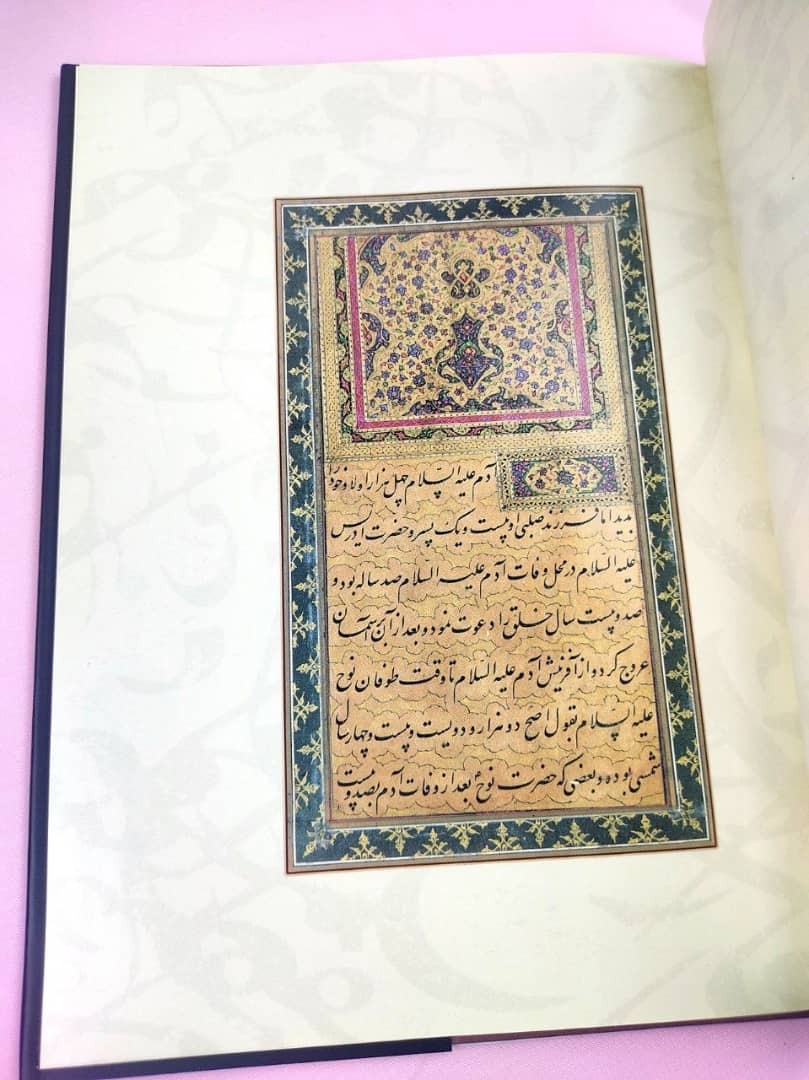 آدم علیه السلام چهل هزار اولاد خود را
بدید اما فرزند صلبی او بیست و یک پسر و حضرت ادریس
علیه السلام در محل وفات آدم علیه السلام صد ساله بود و
صد و بیست سال خلق را دعوت نمود و بعد از آن بر آسمان
عروج کرد و از آفرینش آدم علیه السلام تا وقت طوفان نوح
علیه السلام بقول اصح دو هزار و دویست و بیست و چهار سال
شمسی بوده و بعضی که حضرت نوح بعد از وفات آدم بصد و بیست